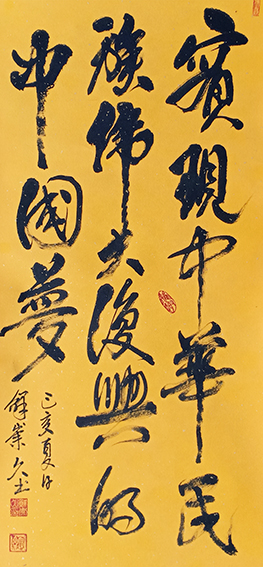 實現中華民
族偉大復興的
中國夢
己亥夏日
解業久書